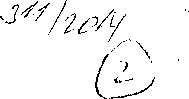 311/2014
2